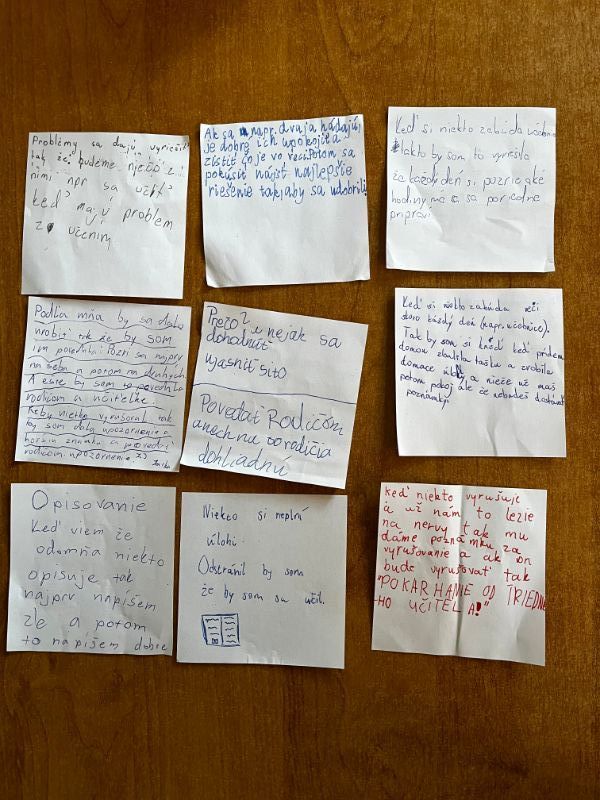 Problémy sa dajú vyriešiť
tak že budeme niečo z
nimi npr sa učiť
keď majú problem
z učením
Ak sa napr. dvaja hádajú,
je dobré ich upokojiť a
zistiť čo je vo veci. Potom sa
pokúsiť nájsť najlepšie
riešenie tak, aby sa udobrili!
Keď si niekto zabúda učebnice
takto by som to vyriešila
že každý deň si pozrie aké
hodiny má a sa poriadne
pripraví
Podľa mňa by sa dalo
urobiť tak že by som
im povedala: Pozri sa najprv
na seba a potom na druhých.
A ešte by som to povedala
rodičom a učiteľke.
Keby niekto vyrušoval tak
by som dala upozornenie a
horšiu známku a povedať
rodičom upozornenie XD
Prečo? u nejak sa
dohodnúť
ujasniť si to
Povedať Rodičom
a nech na to rodičia
dohliadnu
Keď si niekto zabúda veci
skoro každý deň (napr. učebnice).
Tak by som si hneď keď prídem
domov zbalila tašku a urobila
domáce úlohy a nieče už maš
potom pokoj ale že nebudeš dostávať
poznámky.
Opisovanie
Keď viem že
odomňa niekto
opisuje tak
najprv napíšem
zle a potom
to napíšem dobre
Niekto si neplní
úlohi
Odstránil by som
že by som sa učil.
keď niekto vyrušuje
a už nám to lezie
na nervy tak mu
dáme poznámku za
vyrušovanie a ak on
bude vyrušovať tak
"POKARHANIE OD TRIEDNE-
HO UČITEĽA!"